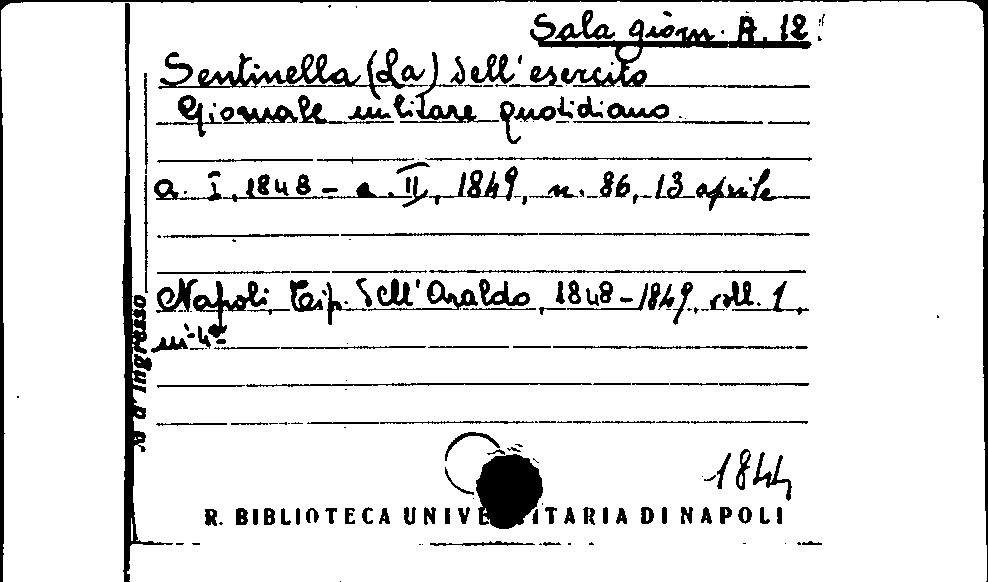 Sala giorn. A. 12
Sentinella (La) dell'esercito
Giornale militare quotidiano
a. I, 1848 - a. II, 1849, n. 86, 13 aprile
Napoli, Tip. dell'Araldo, 1848-1849, voll. 1,
in-4º
N. d'ingresso
1844
R. BIBLIOTECA UNIVE ITARIA DI NAPOLI